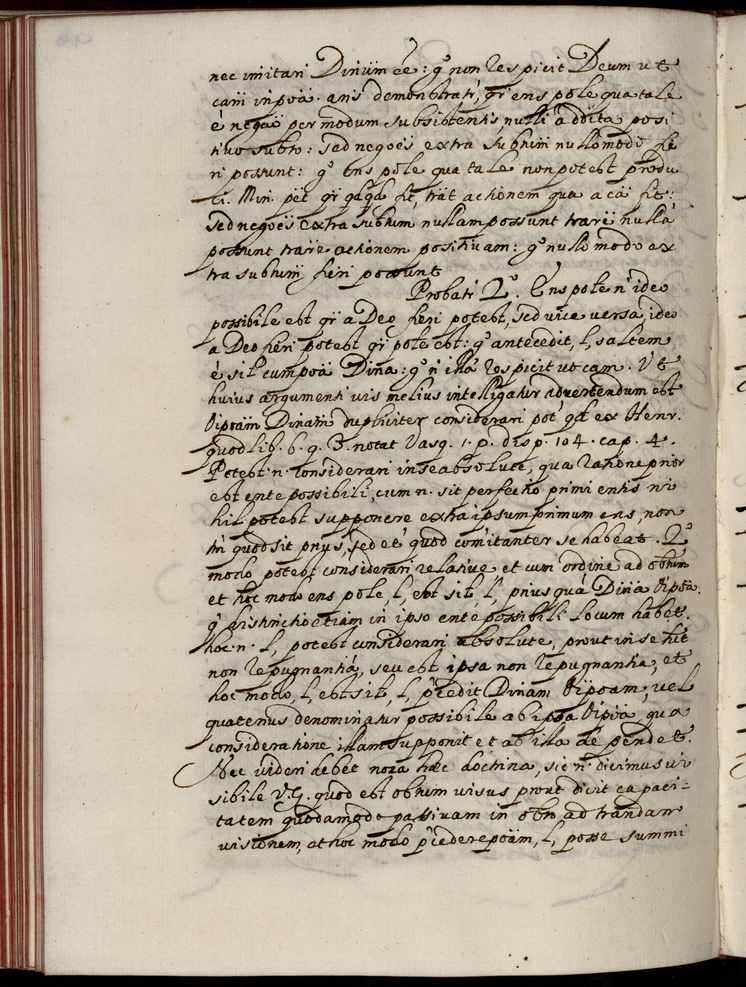 nec imitari Dinum ee: gº non respicit Deum ut
cam inpoa. ans demonstratr, qr ens pole qua tale
e negao per modum subsistentis, nulli addita posi
tivo subto: sed negoes extra subtum nullo modo fie
ri possunt: gº ens pole qua tale non potest produ
ci. Min. pet qr qdqd fit, trat actionem qua a ca fit:
sed negoes extra subtum nullam possunt trare nulla
possunt trare actionem positivam: gº nullo modo ex
tra subtum fieri possunt
Probatr 2º. Ens pole n ideo
possibile est qr a Deo fieri potest, sed vice versa, ideo
a Deo fieri potest qr pole est: gº antecedit, l, saltem
e sil cum poa Dina: gº n illa respicit ut cam. Ut
huius argumenti vis melius intelligatur advertendum est
Oipoam Dinam dupliciter considerari pot qd ex Henr.
quodlib. 6. q. 3. notat Vasq. 1. p. disp. 104. cap. 4.
Potest n. considerari in se absolute, qua ratione prior
est ente possibili, cum n. sit perfectio primi entis ni
hil potest supponere extra ipsum primum ens, non
tm quod sit prius, sed et quod comitanter se habeat. 2º
modo potest considerari relative et cum ordine ad obtum
et hoc modo ens pole, l, est sil, l, prius qua Dina Oipoa.
gº distinctio etiam in ipso ente possibili locum habet.
hoc. n. l, potest considerari absolute, prout in se hit
non repugnantia, seu est ipsa non repugnantia, et
hoc modo, l, est sil, l, pcedit Dinam Oipoam, vel
quatenus denominatur possibile ab ipsa Oipoa, qua
consideratione illam supponit et ab illa de pendet.
Nec videri debet nova haec doctrina, sic n. dicimus vi
sibile V.G. quod est obtum visus prout dicit capaci-
tatem quodamodo passivam in obto ad trandam
visionem, et hoc modo pcedere poam, l, posse summi